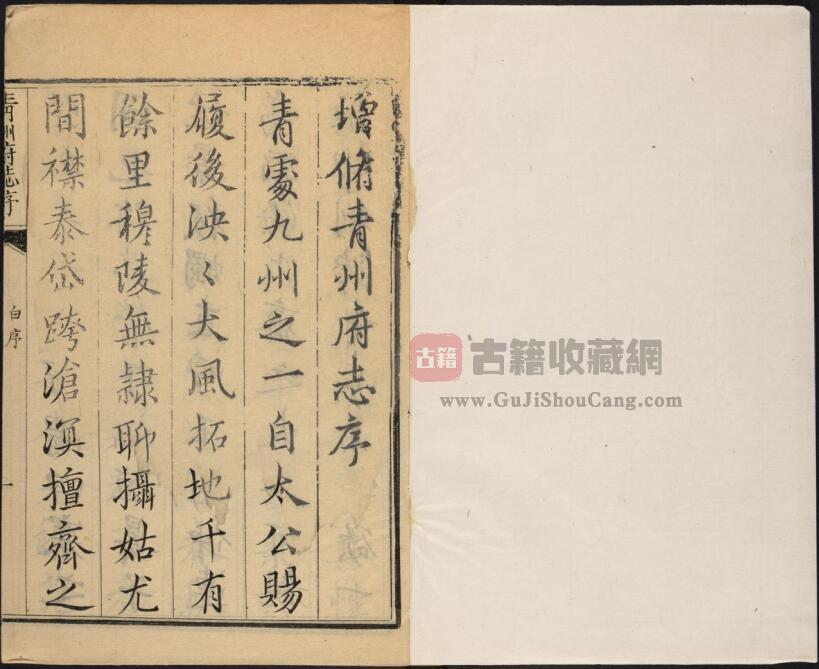 增脩青州府志序
青處九州之一自太公賜
履後泱〻大風拓地千有
餘里穆陵無隷聊攝姑尤
間襟泰岱跨滄溟擅齊之
青州府志序
白序
一
古籍
古籍收藏網
www.GuJiShouCang.com